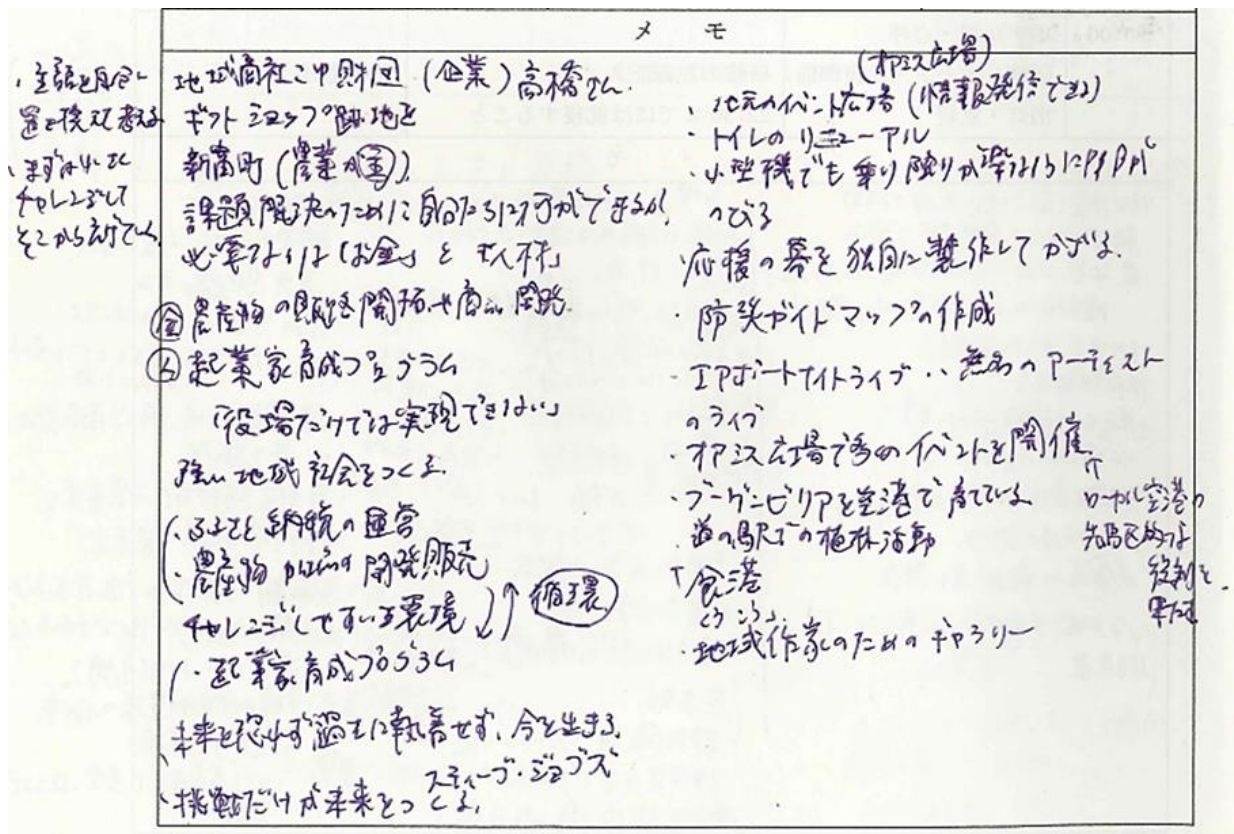 メモ
・主語を自分に
置き換えて考える
・まずは小さく
チャレンジして
そこから広げていく
地域商社こゆ財団 (企業) 高橋さん
ギフトショップ跡地を
新富町 (農業が主)
課題解決のために自分たちに何ができるか
必要なのは「お金」と「人材」
金 農産物の販路開拓や商品開発
人 起業家育成プログラム
「役場だけでは実現できない」
強い地域社会をつくる
・ふるさと納税の運営
・農産物 開発販売
チャレンジしやすい環境
循環
・起業家育成プログラム
未来を恐れず過去に執着せず、今を生きる。
スティーブ・ジョブズ
挑戦だけが未来をつくる。
(オアシス広場)
・地元のイベント広場 (情報発信できる)
・トイレのリニューアル
・小型機でも乗り降りが楽なように
のびる
・応援の幕を独自に製作してかざる。
・防災ガイドマップの作成
・エアポートナイトライブ・・無名のアーティスト
のライブ
オアシス広場で多くのイベントを開催
・ブーゲンビリアを空港で育てている。
道の駅での植林活動
「食港
くうこう」
・地域作家のためのギャラリー
↑
ローカル空港の
先駆的な
役割を
果たす